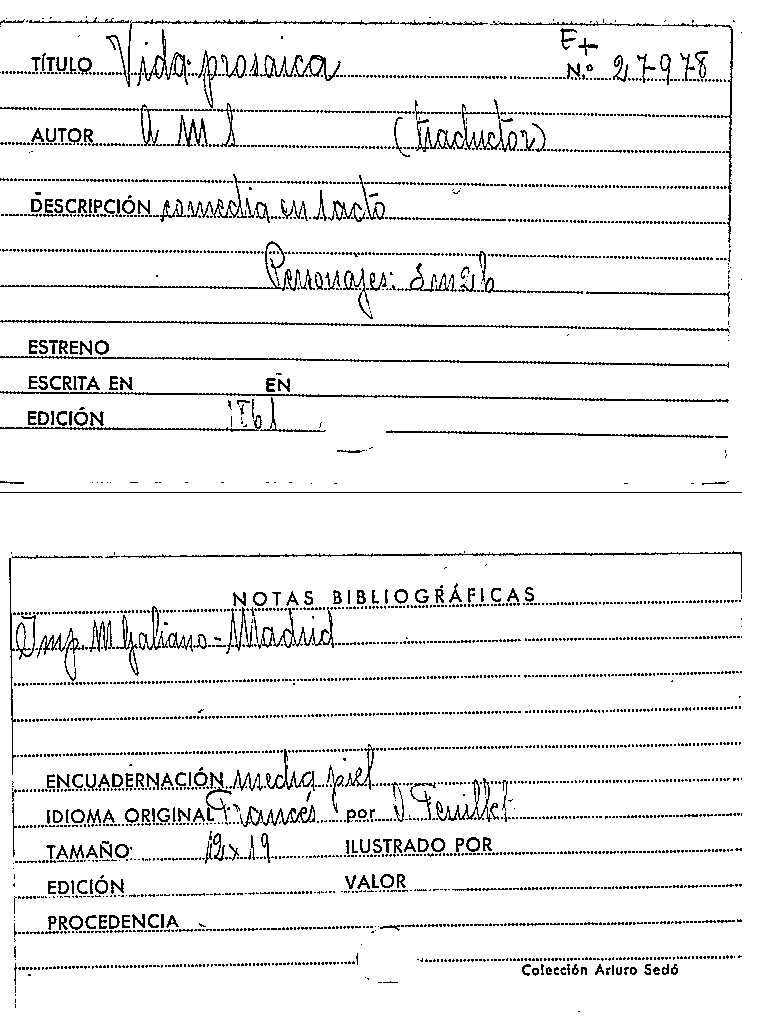 E+
TÍTULO Vida prosaica N.º 27-978
AUTOR A M S (traductor)
DESCRIPCIÓN comedia en 1 acto
Personajes: 2h
ESTRENO
ESCRITA EN EN
EDICIÓN 1861
NOTAS BIBLIOGRÁFICAS
Imp. M Galiano - Madrid
ENCUADERNACIÓN media piel
IDIOMA ORIGINAL Francés por O. Feuillet
TAMAÑO 12 x 19 ILUSTRADO POR
EDICIÓN VALOR
PROCEDENCIA
Colección Arturo Sedó